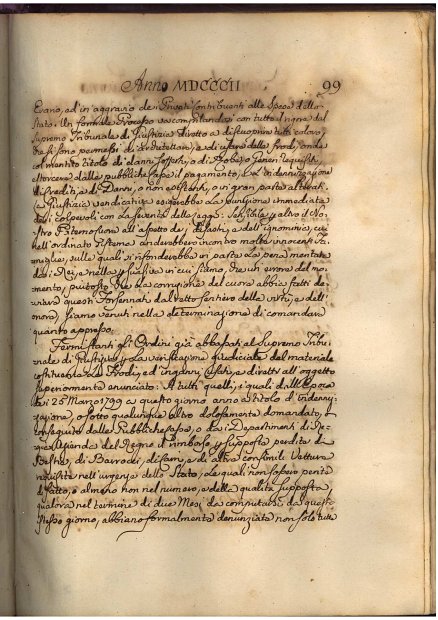 Anno MDCCCII 99
Erano, ed in aggravio dei Privati Contribuenti alle Spese dello
Stato. Un formale Processo va compilandosi con tutto il rigore dal
Supremo Tribunale di Giustizia diretto a discuoprire tutti coloro,
che si sono permessi di architettare, e di usare delle frodi, onde
col mentito titolo di danni sofferti, o di Robe, o Generi requisiti,
estorcere dalle pubbliche Casse il pagamento, e la indennizzazione
di crediti, e di Danni, o non esistenti, o in gran parte alterati.
La Giustizia vendicativa esigerebbe la punizione immediata
dei colpevoli con la severità delle Leggi. Sensibile per altro il Nostro
Paterno Cuore all'aspetto dei disastri, e dell'ignominia, cui
nell'ordinato sistema anderebbero incontro molte innocenti Famiglie,
sulle quali si rifonderebbe in parte la pena meritata
dai Rei, e nella fiducia in cui siamo, che un errore del momento,
piuttosto che la corruzione del cuore abbia fatti deviare
questi Forsennati dal retto sentiero della virtù, e dell'onore,
siamo venuti nella determinazione di comandare
quanto appresso.
Fermi stanti gli Ordini già abbassati al Supremo Tribunale
di Giustizia per la verificazione giudiciale del materiale
costitutivo le Frodi, ed inganni Corsi, e diretti all'oggetto
superiormente enunciato: A tutti quelli, i quali dall'Epoca
dei 25 Marzo 1799 a questo giorno anno a titolo d'indennizzazione,
o sotto qualunque altro dolosamente domandato, o
conseguito dalle Pubbliche Casse, o dai Dipartimenti di Regia
Azienda del Regno il rimborso per supposte perdite di
Bestie, di Barrocci, di Legni, e di altre consimili Vetture
requisite nell'urgenze dello Stato, le quali non fossero perite
di fatto, o almeno non nel numero, e della qualità supposta,
qualora nel termine di due Mesi da computarsi da questo
stesso giorno, abbiano formalmente denunziata non solo tutta